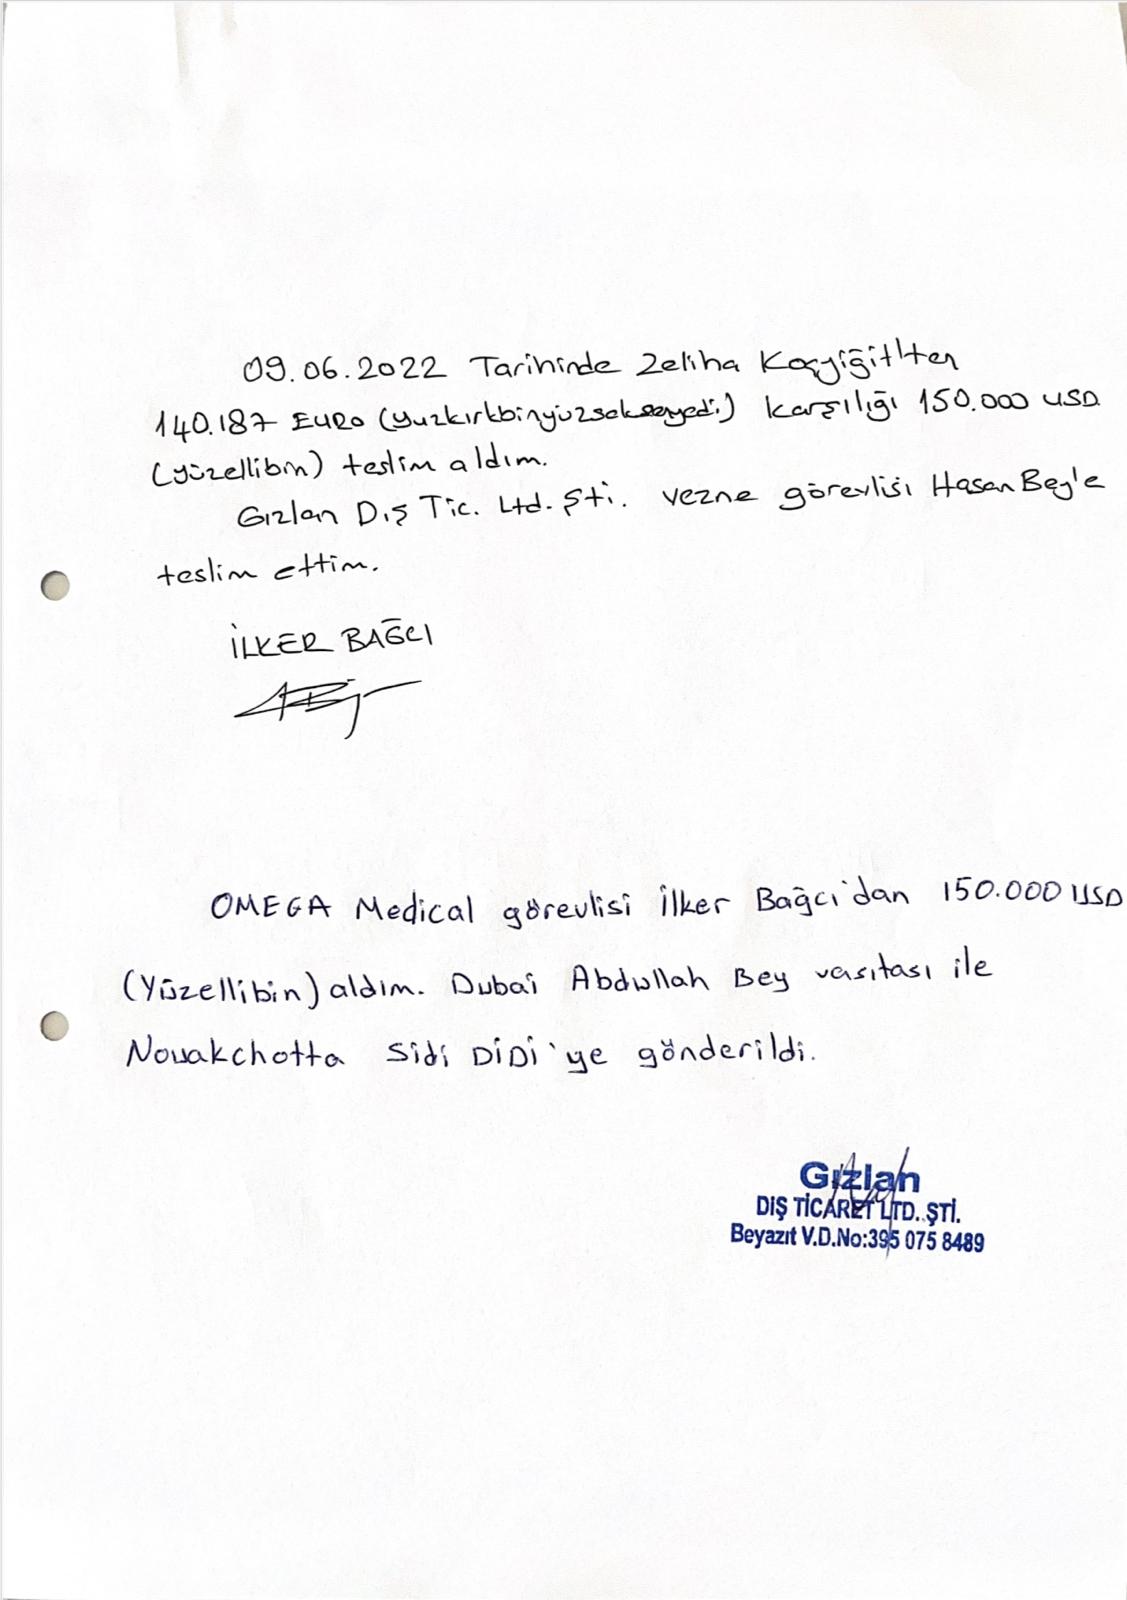 09.06.2022 Tarihinde Zeliha Koçyiğit'ten
140.187 EURO (yuzkırkbinyüzseksenyedi) karşılığı 150.000 USD
(yüzellibin) teslim aldım.
Gızlan Dış Tic. Ltd. Şti. vezne görevlisi Hasan Bey'e
teslim ettim.
İLKER BAĞCI
OMEGA Medical görevlisi İlker Bağcı'dan 150.000 USD
(Yüzellibin) aldım. Dubai Abdullah Bey vasıtası ile
Nouakchotta Sidi DİDİ'ye gönderildi.
Gızlan
DIŞ TİCARET LTD. ŞTİ.
Beyazıt V.D.No:395 075 8489